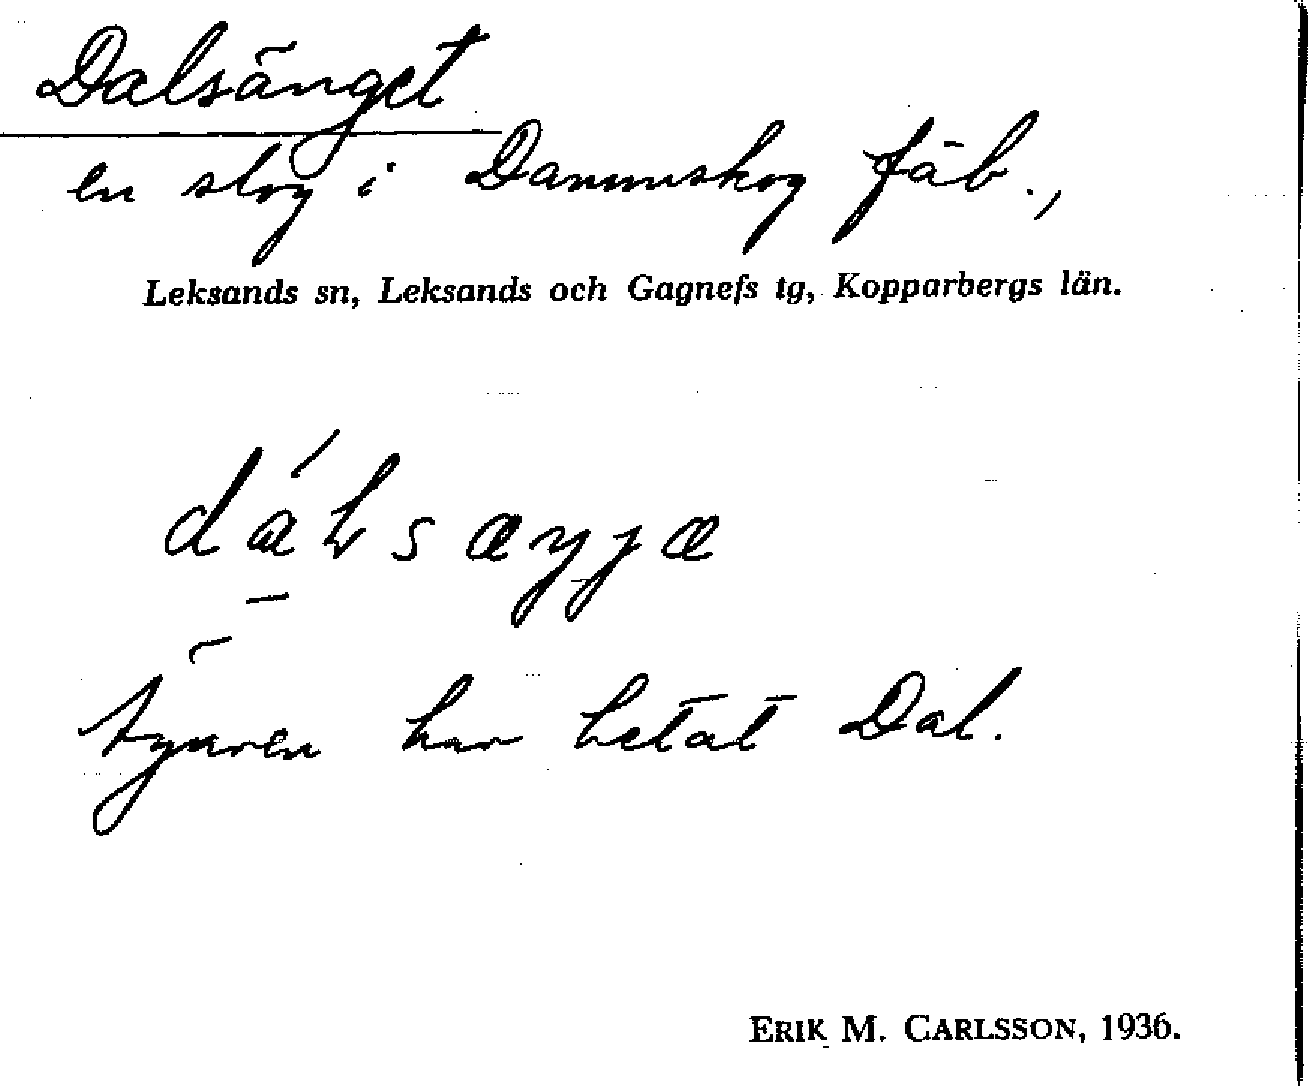 Dalsänget
en slog i Dammskog fäb.,
Leksands sn, Leksands och Gagnefs tg, Kopparbergs län.
Ägaren har hetat Dal.
ERIK M. CARLSSON, 1936.